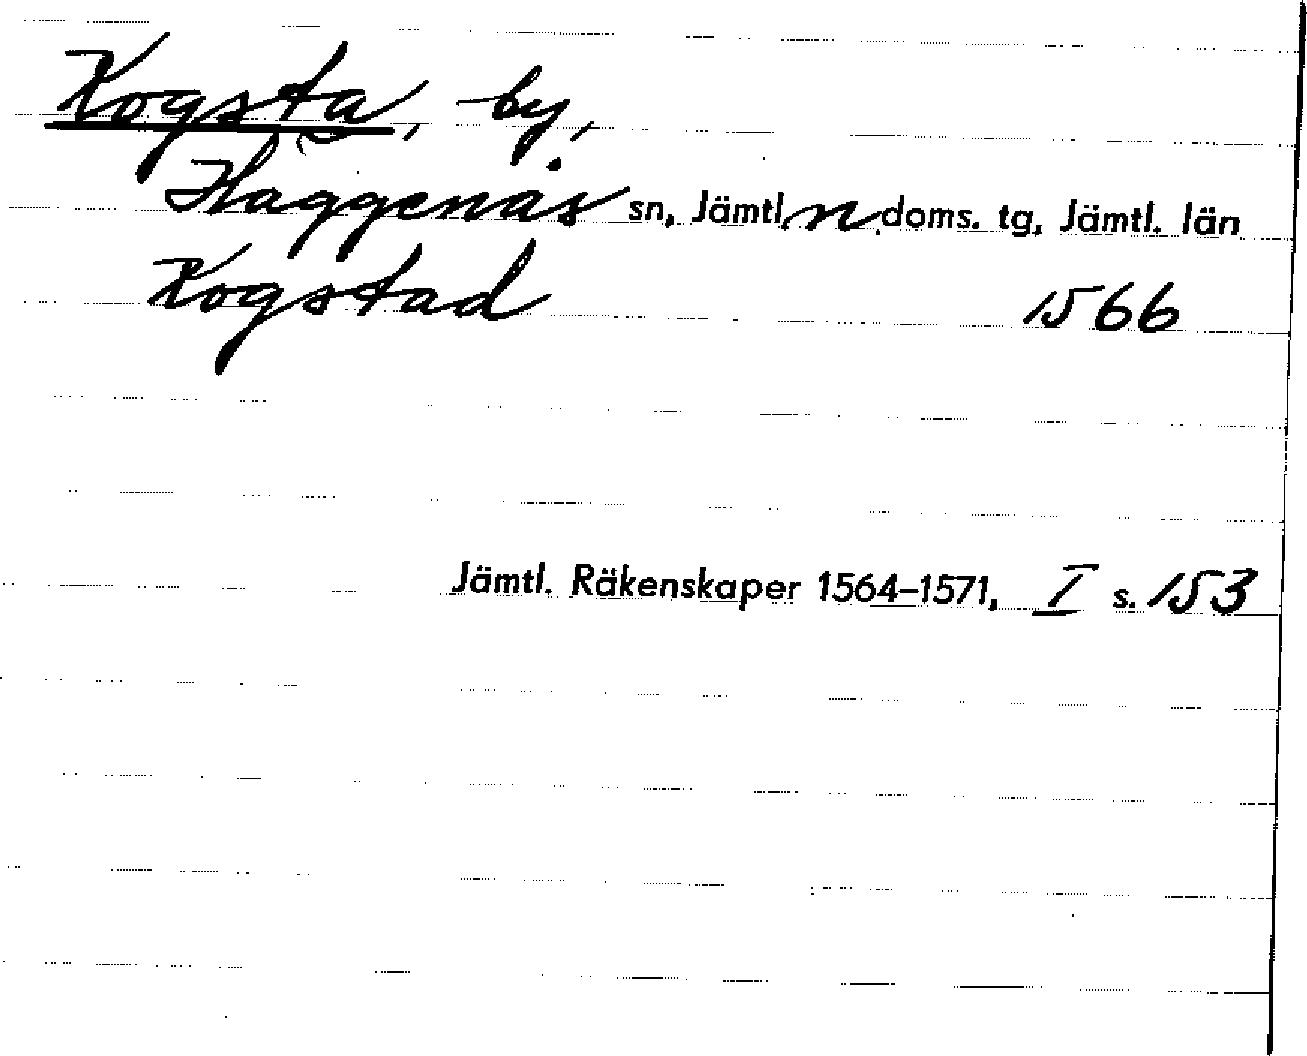 Kogsta, by,
Häggenås sn, Jämtl. n doms. tg, Jämtl. län
Kogstad 1566
Jämtl. Räkenskaper 1564–1571, I s. 153